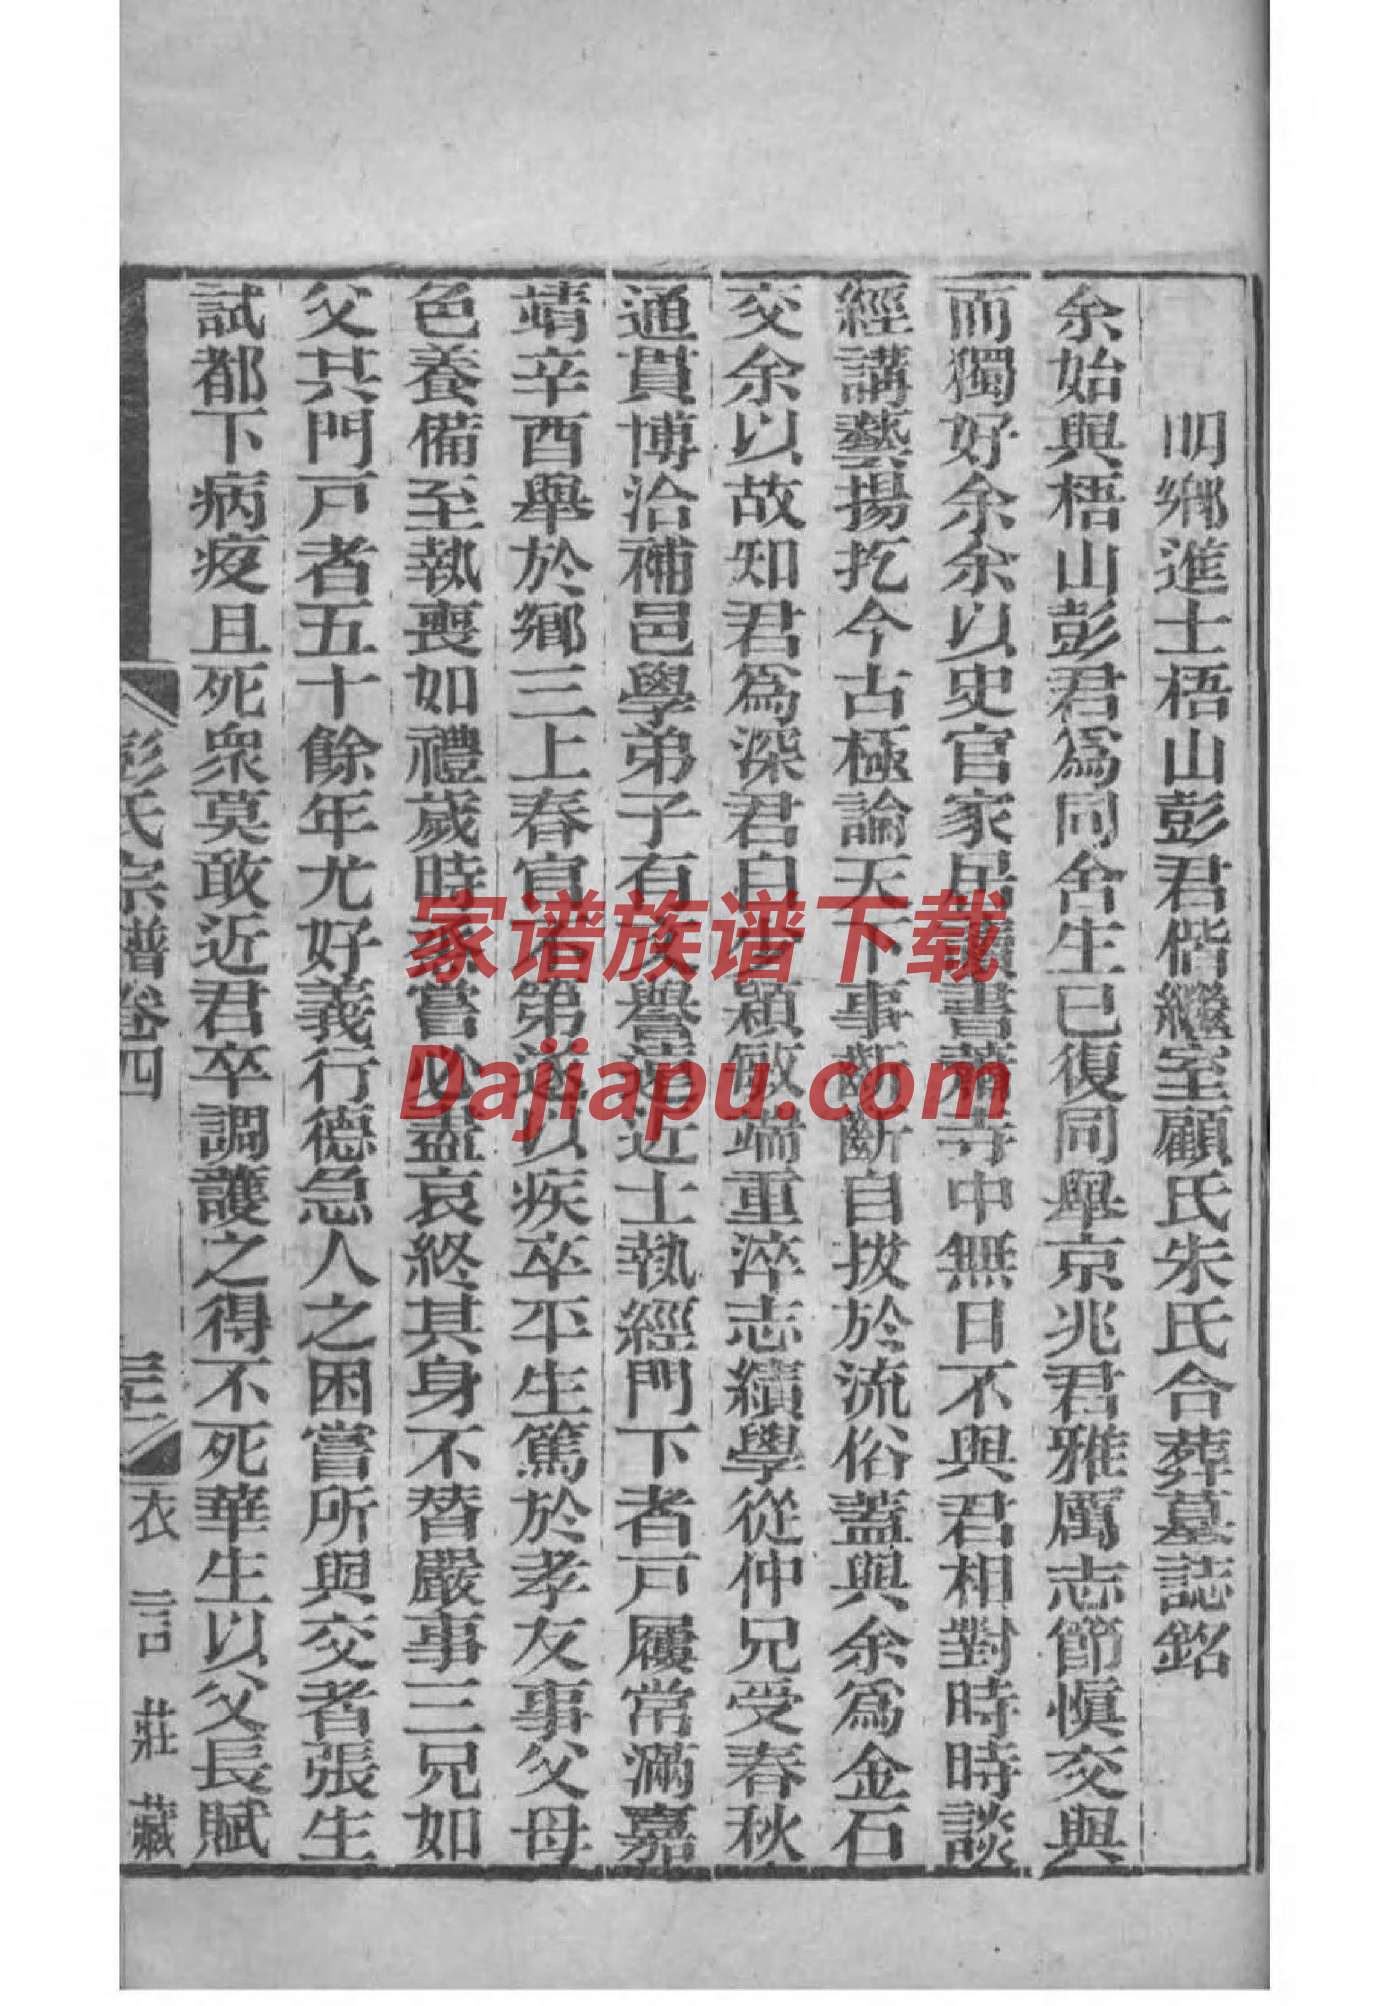 明鄉進士梧山彭君偕繼室顧氏朱氏合葬墓誌銘
余始與梧山彭君爲同舍生已復同舉京兆君雅厲志節慎交與
而獨好余余以史官家居讀書蕭寺中無日不與君相對時時談
經講藝揚扢今古極論天下事斷斷自拔於流俗蓋與余爲金石
交余以故知君爲深君自少穎敏端重淬志績學從仲兄受春秋
通貫博洽補邑學弟子有文譽遠近士執經門下者戶屨常滿嘉
靖辛酉舉於鄉三上春官不第遂以疾卒平生篤於孝友事父母
色養備至執喪如禮歲時蒸嘗必盡哀終其身不替嚴事三兄如
父其門戶者五十餘年尤好義行德急人之困嘗所與交者張生
試都下病疫且死衆莫敢近君卒調護之得不死華生以父長賦
彭氏宗譜卷四
衣言莊藏
家谱族谱下载
Dajiapu.com